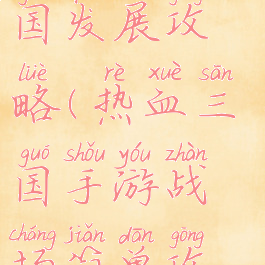 国发展攻
lüè rè xuè sān
略(热血三
guó shǒu yóu zhàn
国手游战
cháng jiǎn dān gōng
场简单攻